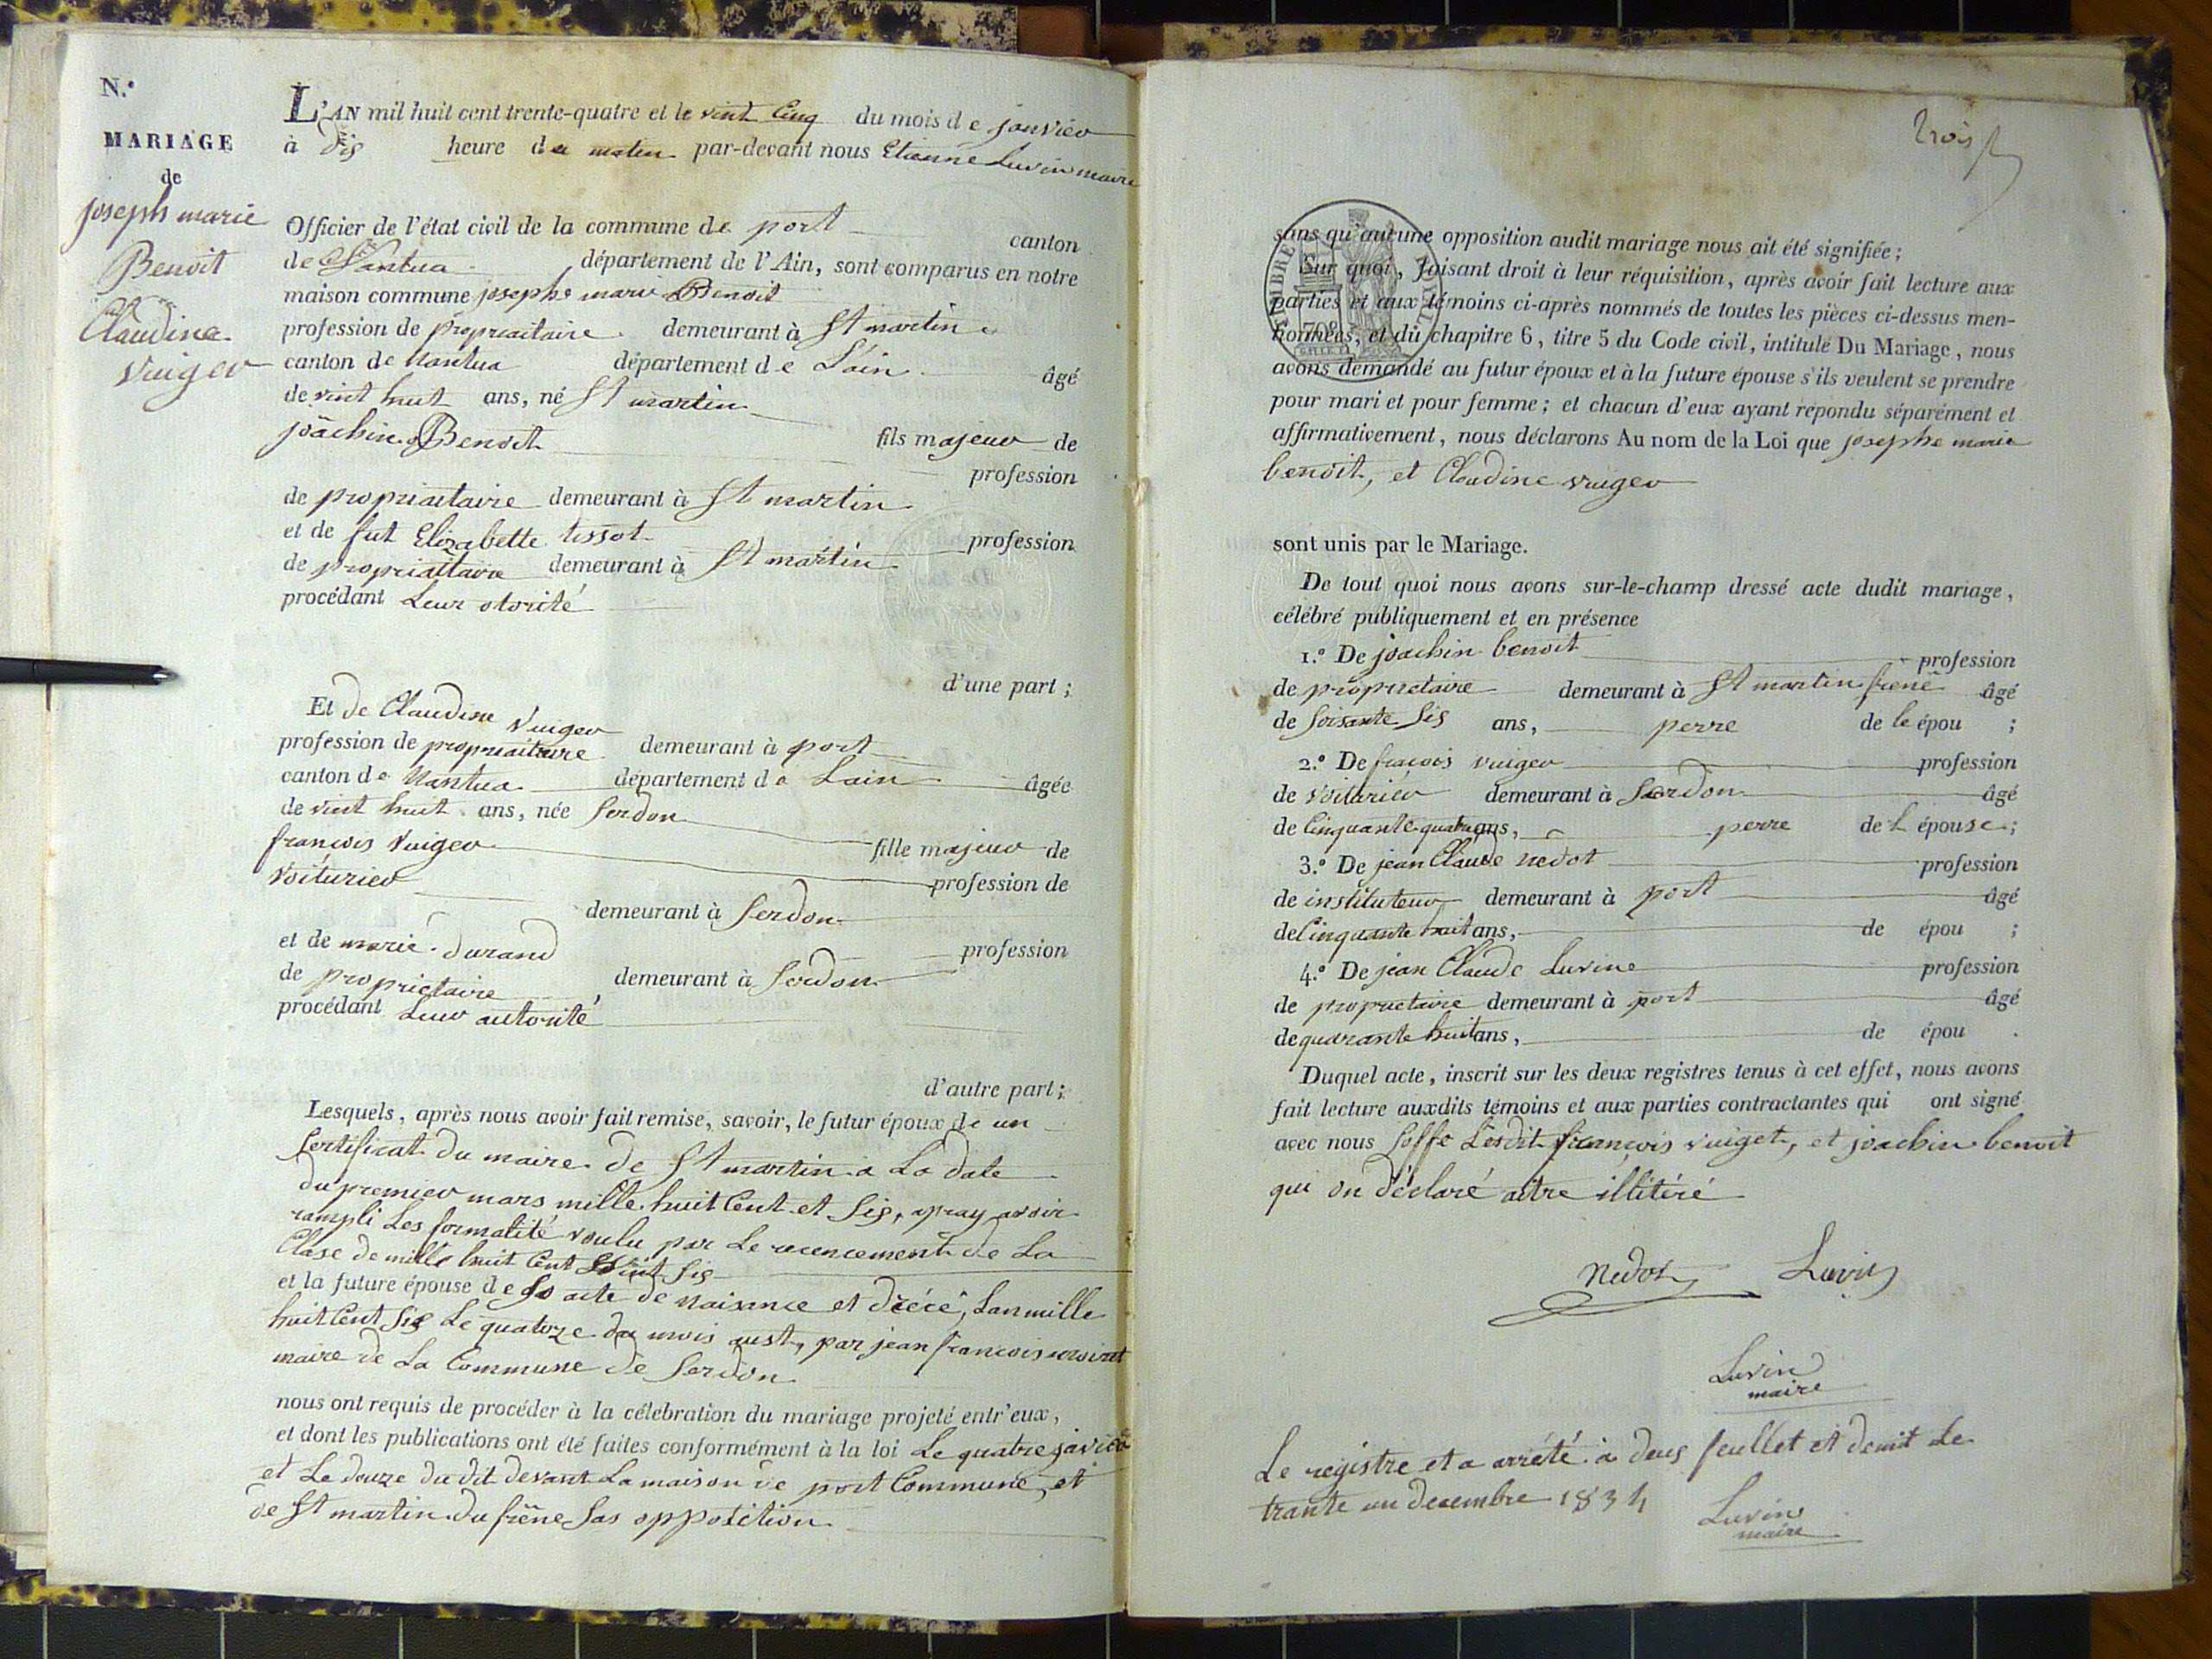 N.º
MARIAGE
de
joseph marie
Benoit
et
Claudine
vuiger
L'AN mil huit cent trente-quatre et le vint cinq du mois de janvier
à dis heure du matin par-devant nous Etienne Luvin maire
Officier de l'état civil de la commune de port canton
de Nantua département de l'Ain, sont comparus en notre
maison commune josephe marie Benoit
profession de propriaitaire demeurant à St martin
canton de Nantua département de L'ain âgé
de vint huit ans, né St martin
joachin Benoit fils majeur de
profession
de propriaitaire demeurant à St martin
et de fut Elizabette tissot profession
de propriaitaire demeurant à St martin
procédant Leur otorité
d'une part ;
Et de Claudine vuiger
profession de propriaitaire demeurant à port
canton de Nantua département de Lain âgée
de vint huit ans, née Serdon
francois vuiger fille majeur de
voiturier profession de
demeurant à Serdon
et de marie durand profession
de proprietaire demeurant à Serdon
procédant Leur autorité
d'autre part ;
Lesquels, après nous avoir fait remise, savoir, le futur époux de un
Sertificat du maire de St martin a La date
du premier mars mille huit Cent et Sis, apray avoir
rampli Les formalité voulu par Le recencement de La
Clase de mille huit Cent vint Sis
et la future épouse de so acte de naisance et drécé, Lan mille
huit Cent Sis Le quatorze du mois aust, par jean francois
maire de La Commune de Serdon
nous ont requis de procéder à la célébration du mariage projeté entr'eux,
et dont les publications ont été faites conformément à la loi Le quatre javier
et Le douze du dit devant La maison de port Commune, et
de St martin du frêne Sas opposition
trois
TIMBRE
70c
sans qu'aucune opposition audit mariage nous ait été signifiée ;
Sur quoi, faisant droit à leur réquisition, après avoir fait lecture aux
parties et aux témoins ci-après nommés de toutes les pièces ci-dessus men-
tionnées, et du chapitre 6, titre 5 du Code civil, intitulé Du Mariage, nous
avons demandé au futur époux et à la future épouse s'ils veulent se prendre
pour mari et pour femme ; et chacun d'eux ayant répondu séparément et
affirmativement, nous déclarons Au nom de la Loi que josephe marie
benoit, et Claudine vuiger
sont unis par le Mariage.
De tout quoi nous avons sur-le-champ dressé acte dudit mariage,
célébré publiquement et en présence
1.º De joachin benoit profession
de proprietaire demeurant à St martin frene âgé
de Soisante Sis ans, perre de le épou ;
2.º De fracois vuiger profession
de voiturier demeurant à Serdon âgé
de Cinquante quatre ans, perre de L épouse ;
3.º De jean Claude nedot profession
de instituteur demeurant à port âgé
de Cinquante huit ans, de épou ;
4.º De jean Claude Luvine profession
de proprietaire demeurant à port âgé
de quarante huit ans, de épou .
Duquel acte, inscrit sur les deux registres tenus à cet effet, nous avons
fait lecture auxdits témoins et aux parties contractantes qui ont signé
avec nous Soffe Lesdit francois vuiget, et joachin benoit
qui on déclaré aitre illitéré
Nedot Luvin
Luvin
maire
Le registre et a arrété à deus feullet et demit Le
trante un decembre 1834
Luvin
maire